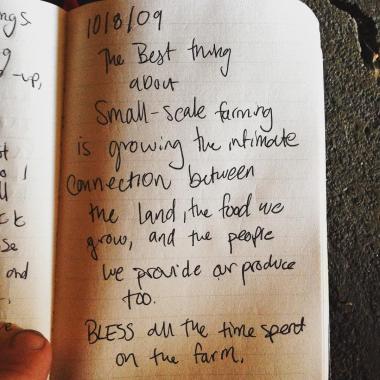 ngs
g
-up,
10/8/09
The Best thing
about
Small-scale farming
is growing the intimate
connection between
the land, the food we
grow, and the people
we provide our produce
too.
BLESS all the time spent
on the farm.
se
and